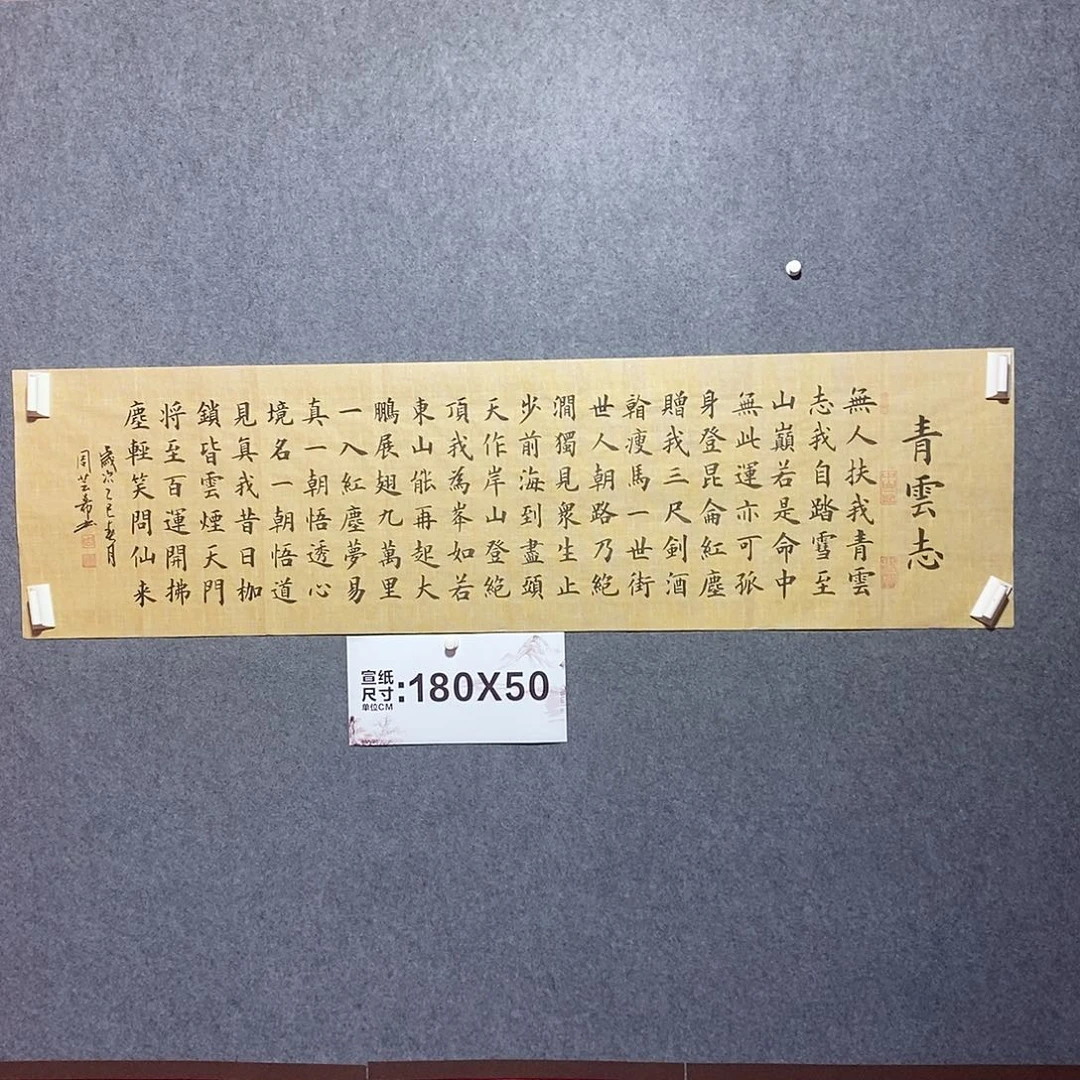 青雲志
無人扶我青雲
志我自踏雪至
山巔若是命中
無此運亦可孤
身登昆侖紅塵
贈我三尺劍酒
翰瘦馬一世街
世人朝路乃絕
澗獨見衆生止
步前海到盡頭
天作岸山登絕
頂我為峯如若
東山能再起大
鵬展翅九萬里
一入紅塵夢易
真一朝悟透心
境名一朝悟道
見真我昔日枷
鎖皆雲煙天門
将至百運開拂
塵輕笑問仙来
歲次乙巳春月
宣纸
尺寸:180X50
单位CM